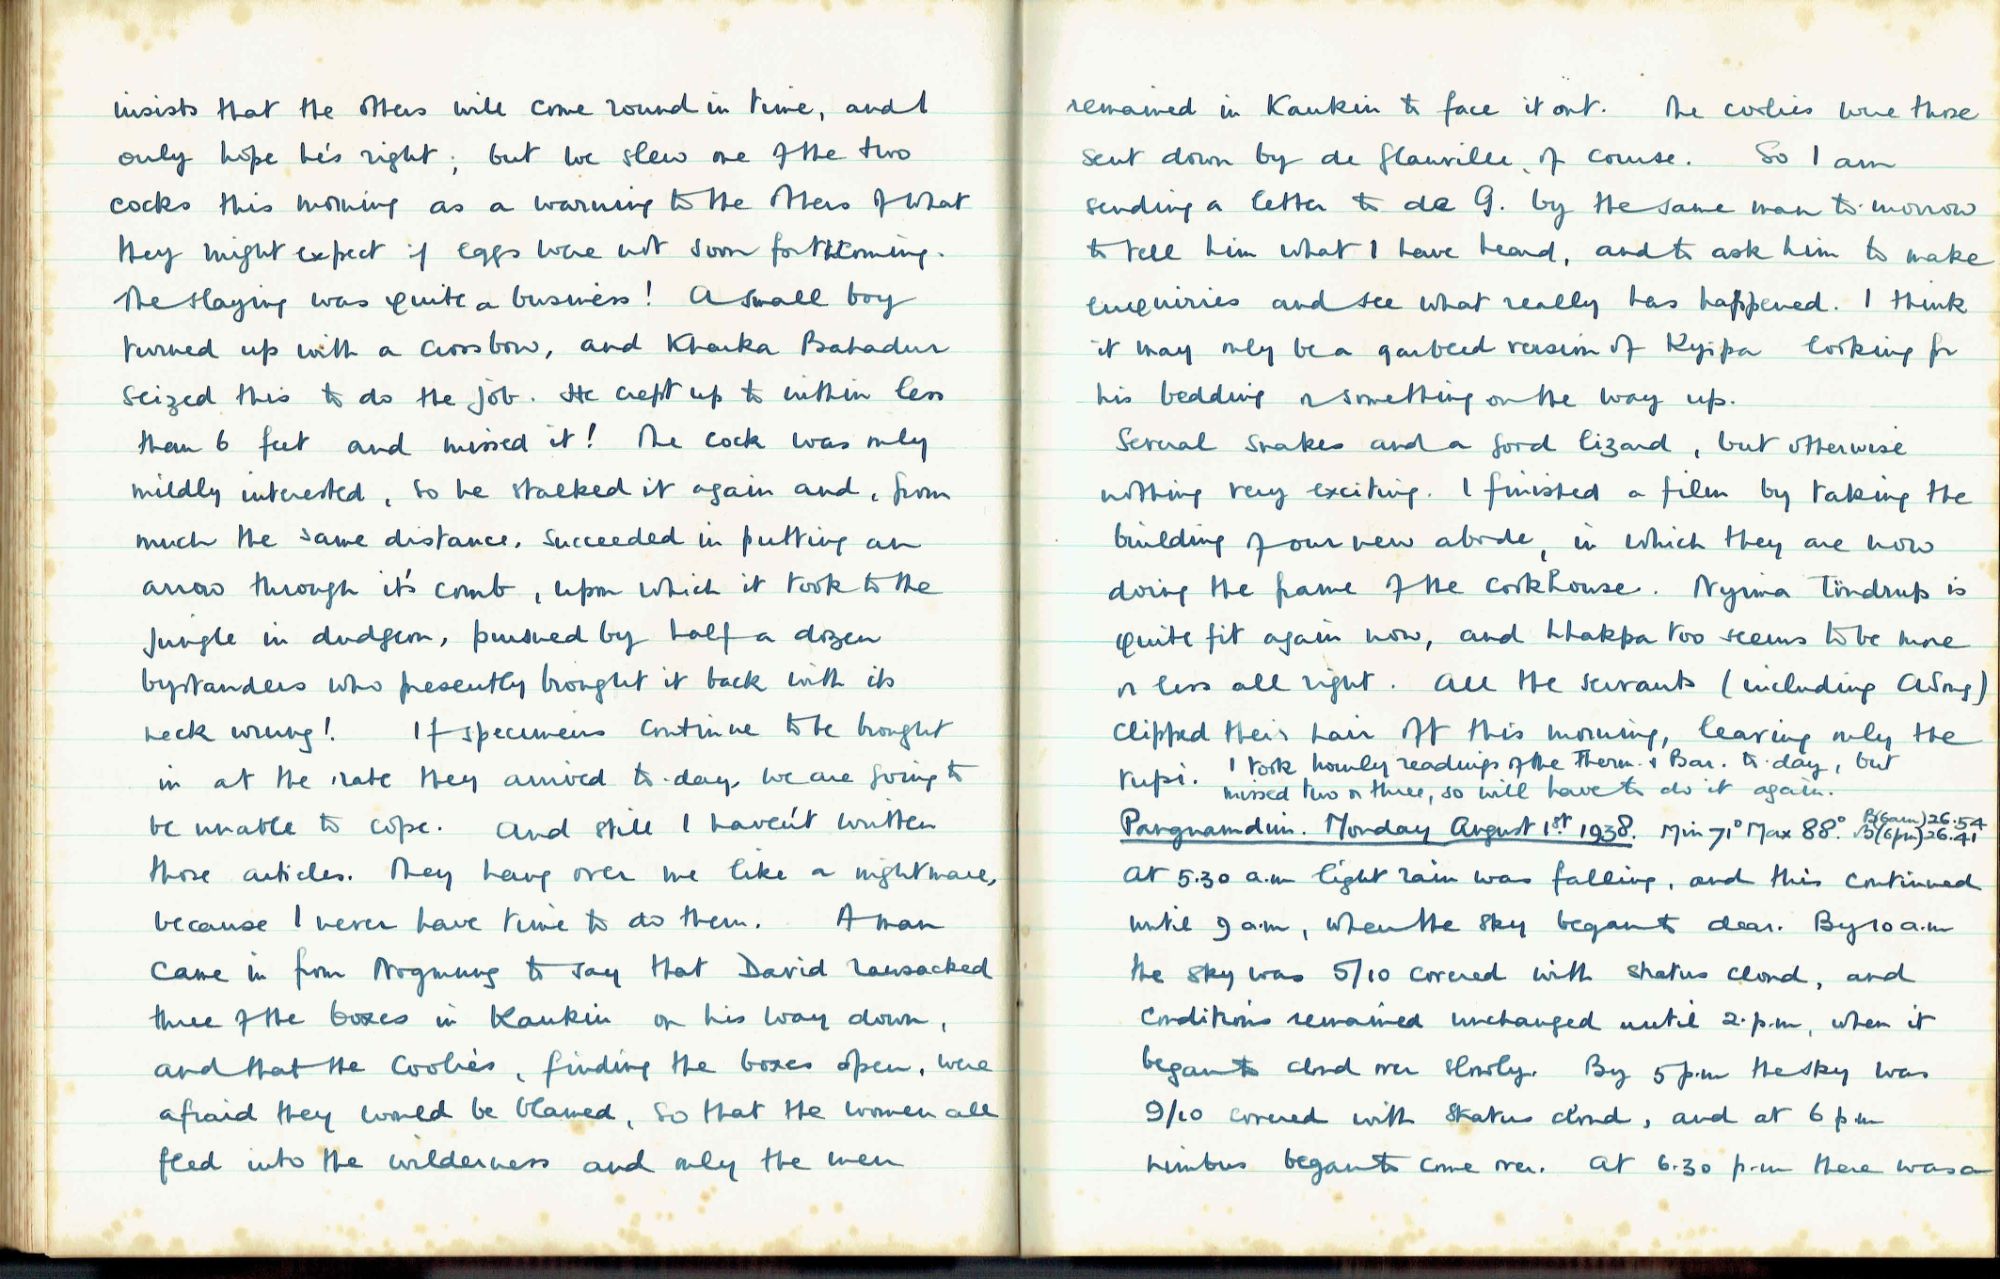 insists that the others will come round in time, and I
only hope he's right; but we slew one of the two
cocks this morning as a warning to the others of what
they might expect if eggs were not soon forthcoming.
The slaying was quite a business! A small boy
turned up with a crossbow, and Kharka Bahadur
seized this to do the job. He crept up to within less
than 6 feet and missed it! The cock was only
mildly interested, so he stalked it again and, from
much the same distance, succeeded in putting an
arrow through it's comb, upon which it took to the
jungle in dudgeon, pursued by half a dozen
bystanders who presently brought it back with its
neck wrung! If specimens continue to be brought
in at the rate they arrived to-day, we are going to
be unable to cope. And still I haven't written
those articles. They hang over me like a nightmare,
because I never have time to do them. A man
came in from Nogmung to say that David ransacked
three of the boxes in Kankin on his way down,
and that the coolies, finding the boxes open, were
afraid they would be blamed, so that the women all
fled into the wilderness and only the men
remained in Kankin to face it out. The coolies were those
sent down by de Glanville, of course. So I am
sending a letter to de G. by the same man to-morrow
to tell him what I have heard, and to ask him to make
enquiries and see what really has happened. I think
it may only be a garbled version of Kyipa looking for
his bedding or something on the way up.
Several snakes and a good lizard, but otherwise
nothing very exciting. I finished a film by taking the
building of our new abode, in which they are now
doing the frame of the cookhouse. Nyima Töndrup is
quite fit again now, and Lhakpa too seems to be more
or less all right. All the servants (including Asong)
clipped their hair off this morning, leaving only the
tupi. I took hourly readings of the Therm. & Bar. to-day, but
missed two or three, so will have to do it again.
Pangnamdim. Monday August 1st 1938. Min 71° Max 88°. B(6am)26.54
B(6pm)26.41
At 5.30 a.m light rain was falling, and this continued
until 9 a.m, when the sky began to clear. By 10 a.m
the sky was 5/10 covered with stratus cloud, and
conditions remained unchanged until 2.p.m, when it
began to cloud over slowly. By 5 p.m the sky was
9/10 covered with stratus cloud, and at 6 p.m
nimbus began to come over. At 6.30 p.m there was a